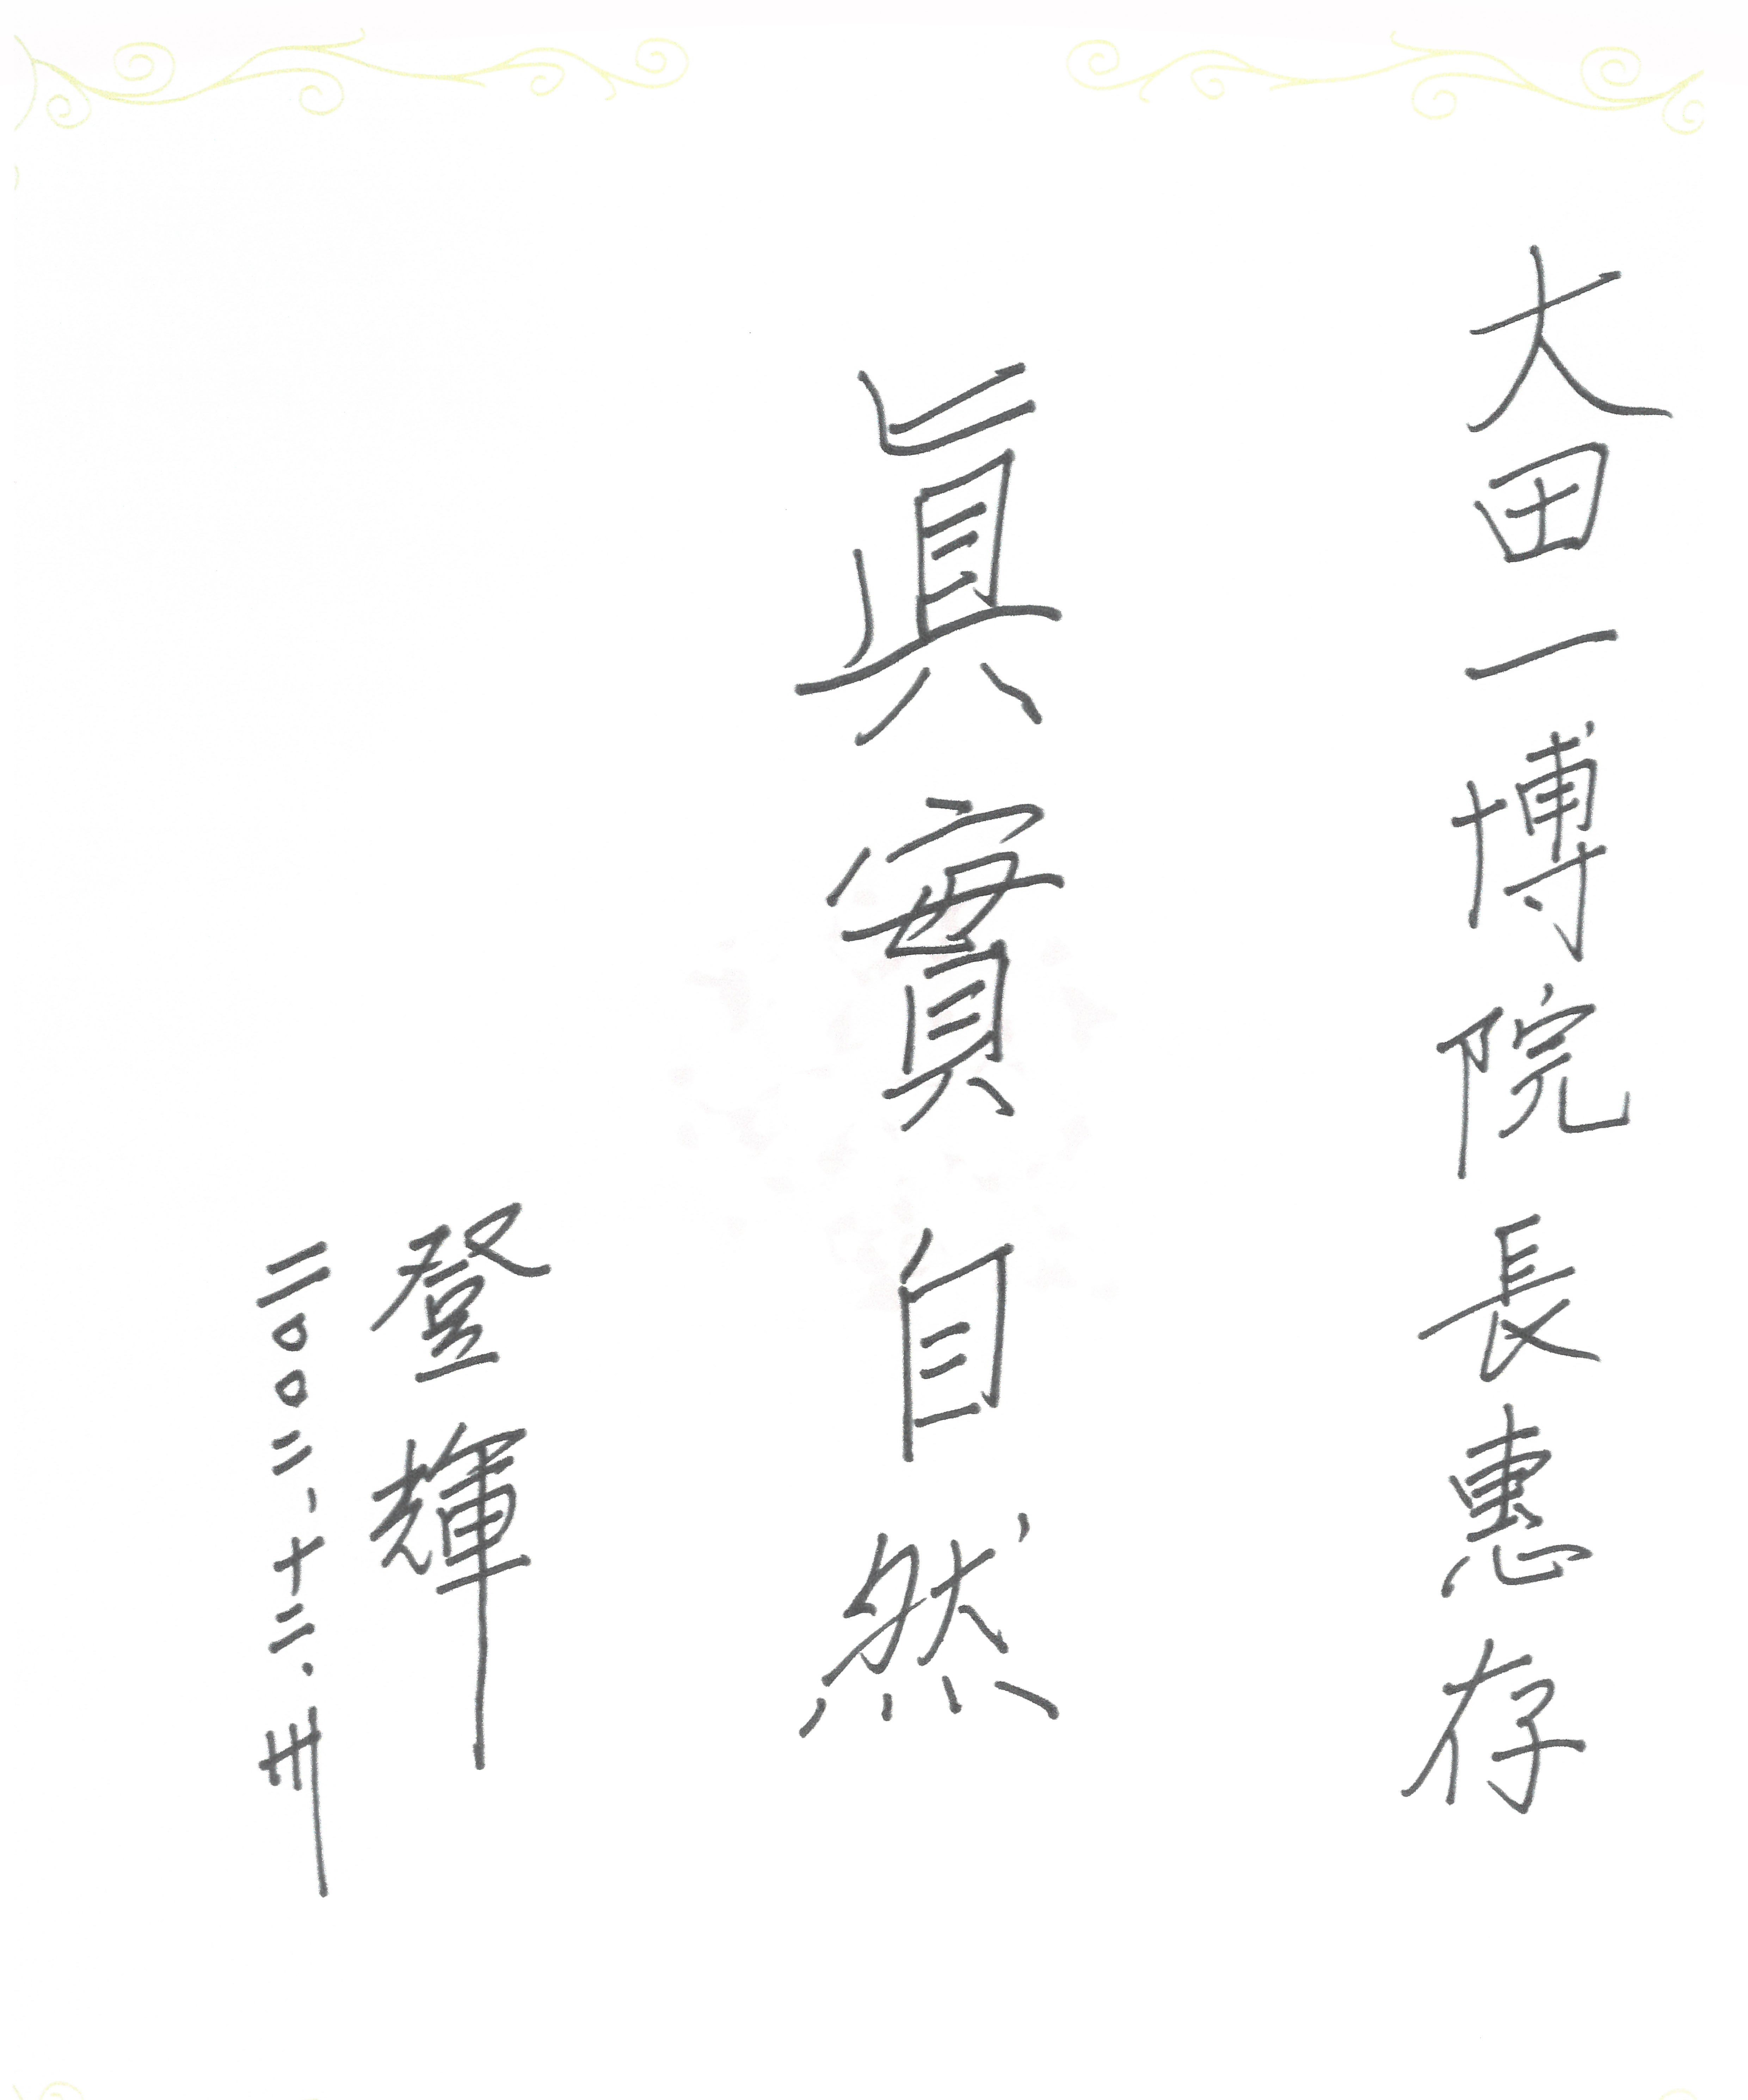 大田一博院長惠存
眞實自然
登輝
二〇〇二、十二.卅